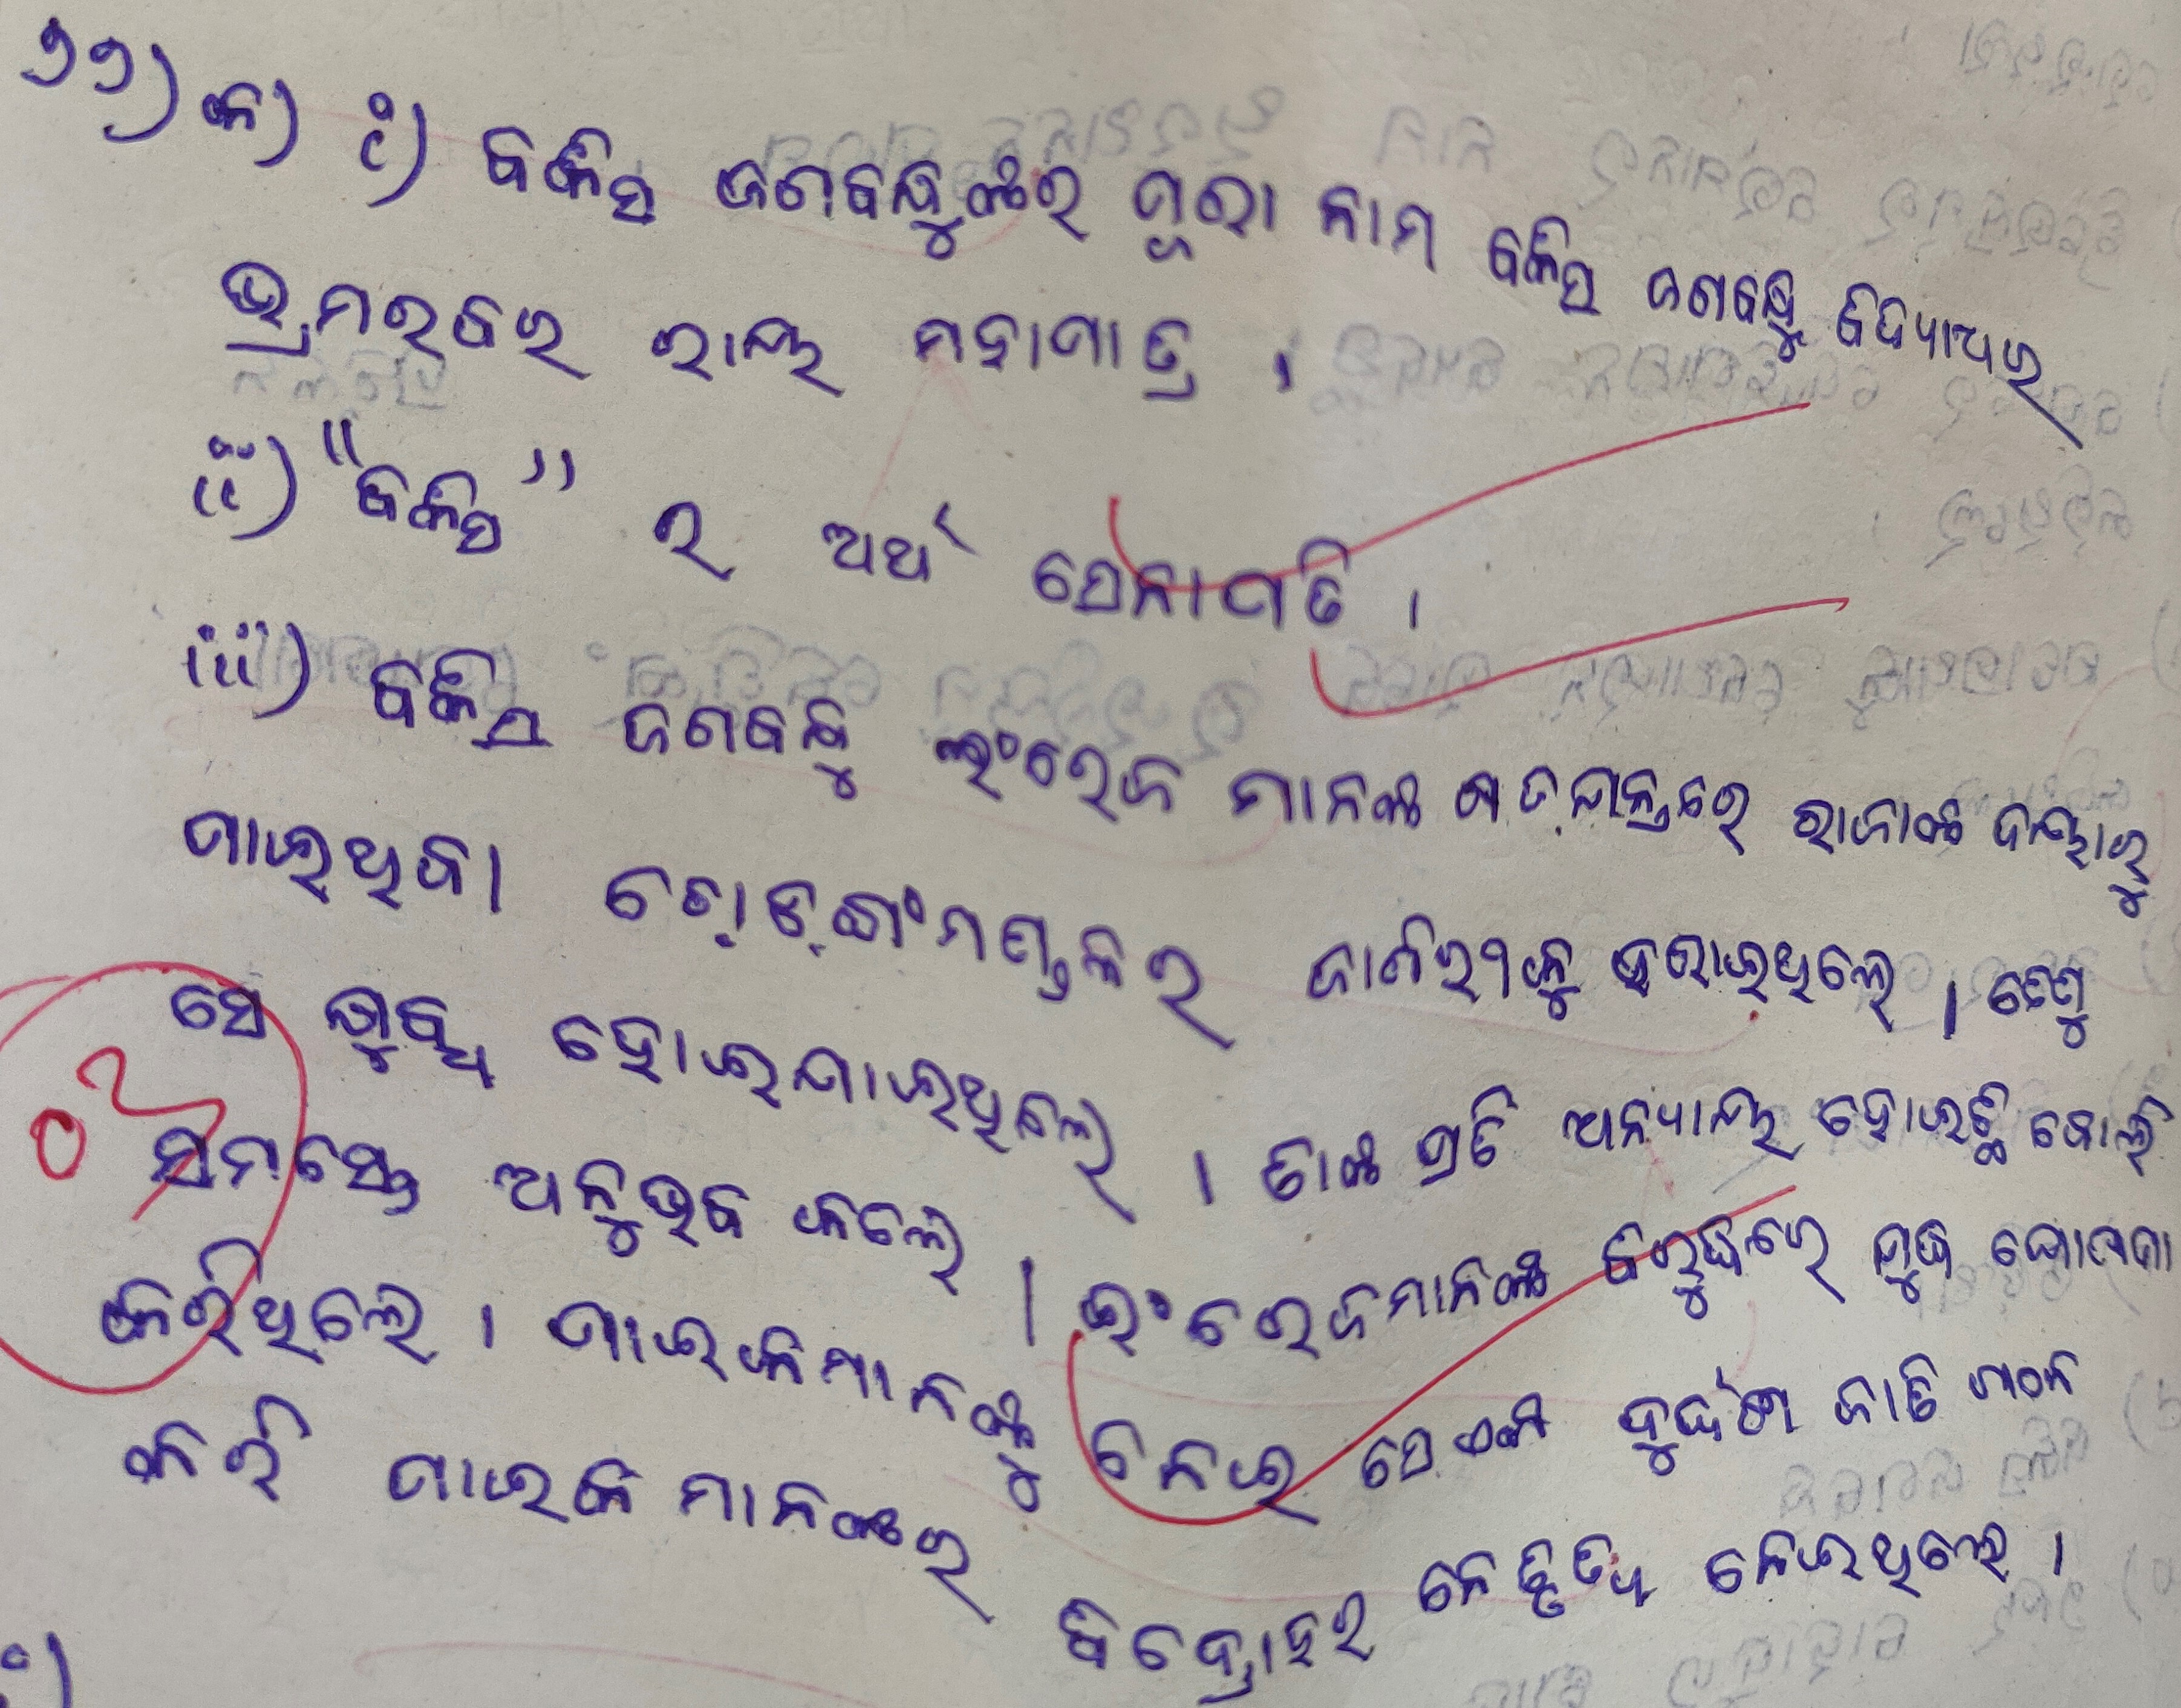 ୨୨) କ) i) ବକ୍ସି ଜଗବନ୍ଧୁଙ୍କର ପୁରା ନାମ ବକ୍ସି ଜଗବନ୍ଧୁ ବିଦ୍ୟାଧର
ଭ୍ରମରବର ରାୟ ମହାପାତ୍ର ।
ii) "ବକ୍ସି" ର ଅର୍ଥ ସେନାପତି ।
iii) ବକ୍ସି ଜଗବନ୍ଧୁ ଇଂରେଜ ମାନଙ୍କ ଷଡଯନ୍ତ୍ରରେ ରାଜାଙ୍କ ଦ୍ୱାରୁ
ପାଇଥିବା ରୋଡ଼ଙ୍ଗମଣ୍ଡଳର ଜାଗିରୀକୁ ହରାଇଥିଲେ । ତେଣୁ
ସେ କ୍ଷୁବ୍ଧ ହୋଇଯାଇଥିଲେ । ତାଙ୍କ ପ୍ରତି ଅନ୍ୟାୟ ହୋଇଛି ବୋଲି
ସମସ୍ତେ ଅନୁଭବ କଲେ । ଇଂରେଜମାନଙ୍କ ବିରୁଦ୍ଧରେ ଯୁଦ୍ଧ ଘୋଷଣା
କରିଥିଲେ । ପାଇକମାନଙ୍କୁ ନେଇ ସେ ଏକ ଦୁର୍ଦ୍ଧର୍ଷ ଜାତି ଗଠନ
କରି ପାଇକ ମାନଙ୍କର ବିଦ୍ରୋହର ନେତୃତ୍ୱ ନେଇଥିଲେ ।